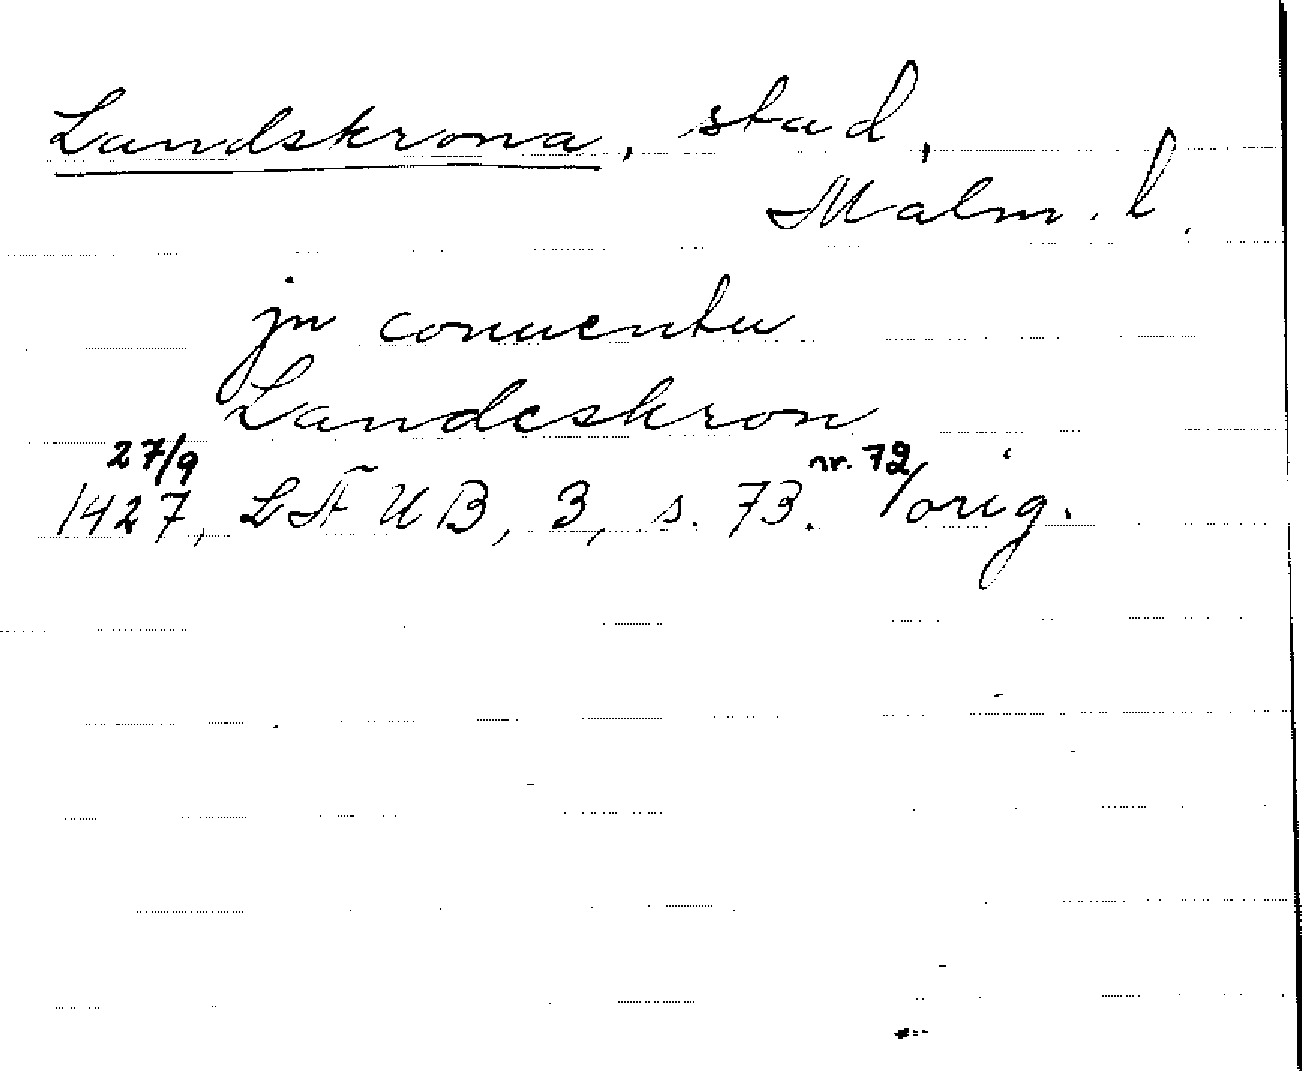 Landskrona, stad,
Malm. l.
jn conuentu
Landeskron
27/9
1427, LFUB, 3, s. 73. nr. 72/orig.